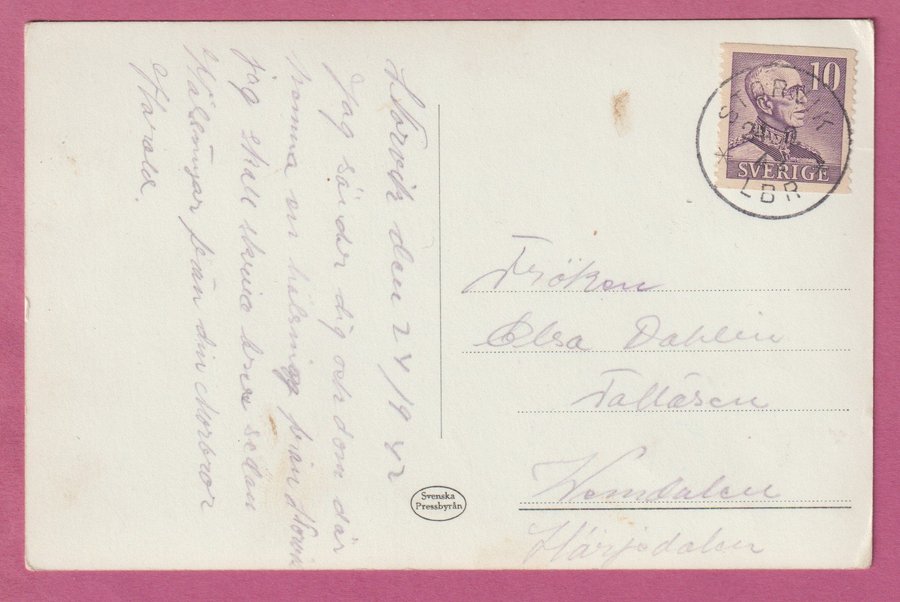 Storvik den 24/9 42
Jag sänder dig och dom där
hemma en hälsning från Storvik
jag skall skriva brev sedan
Hälsningar från din Morbror
Harald.
10
SVERIGE
STORVIK
LBR
Fröken
Elsa Dahlin
Tallåsen
Vemdalen
Härjedalen
Svenska
Pressbyrån